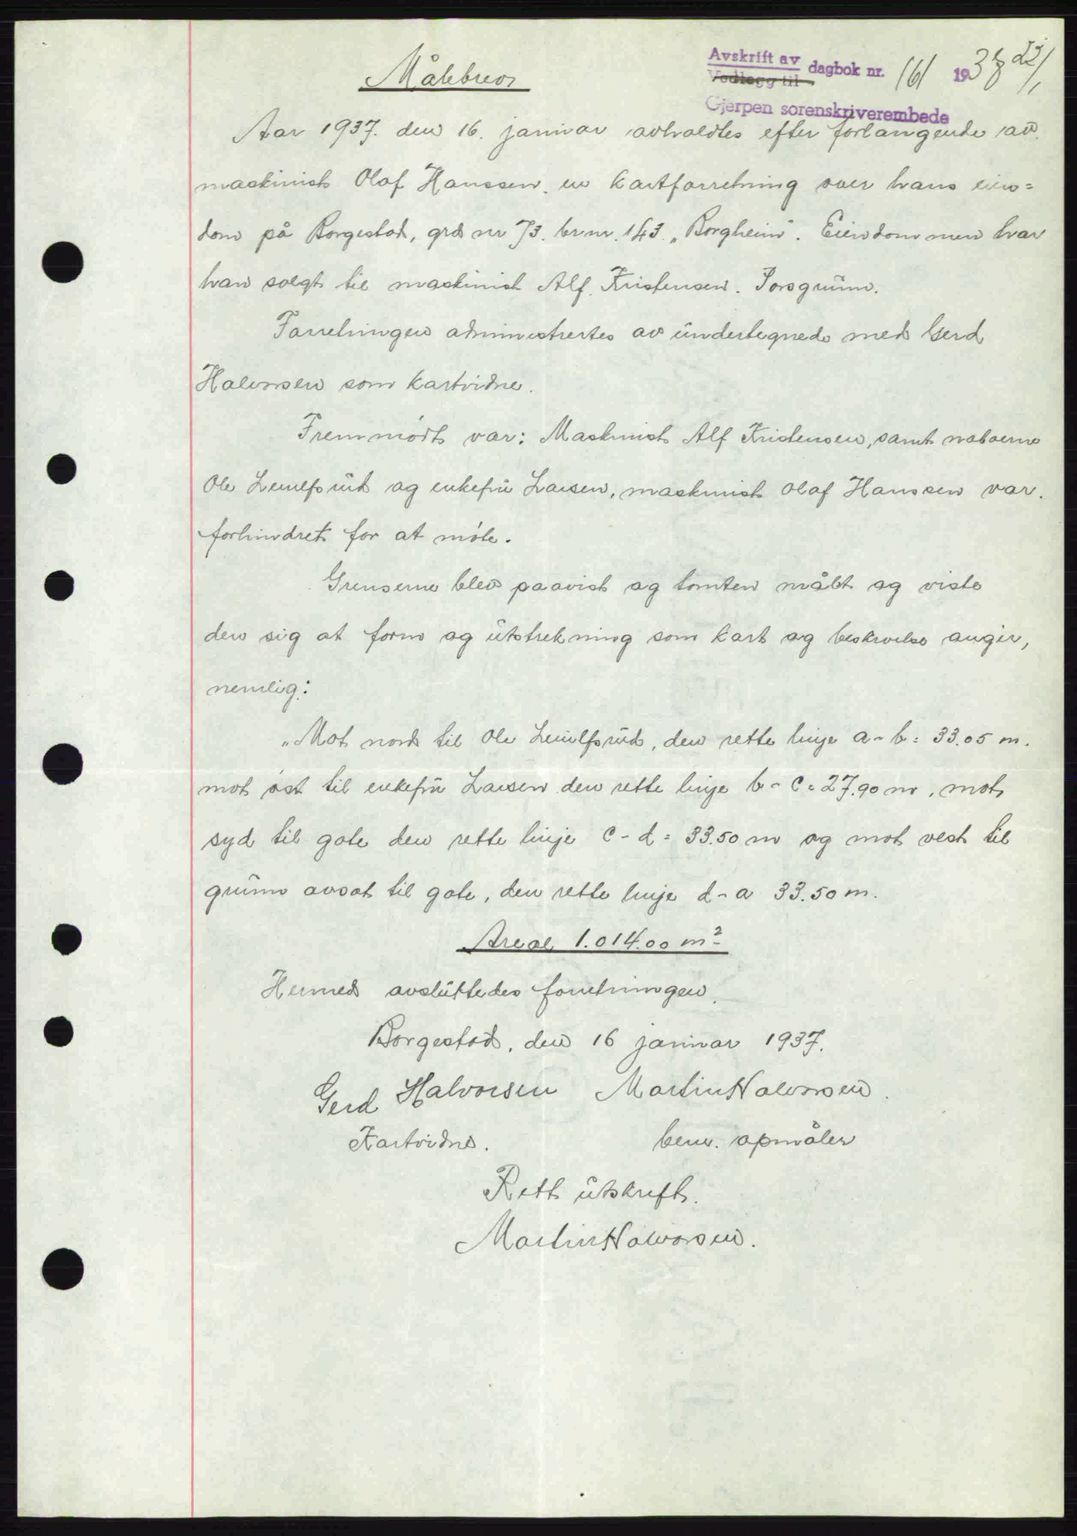 Målebrev
Avskrift av dagbok nr. 161 1938 22/1
Vedlegg til
Gjerpen sorenskriverembede
Aar 1937. den 16. januar avholdtes efter forlangende av
maskinist Olaf Hanssen. en kartforretning over hans eien=
dom på Borgestad, grd nr 73. br.nr. 143 „Borgheim". Eiendommen har
han solgt til maskinist Alf. Kristensen. Porsgrunn.
Forretningen administrertes av undertegnede med Gerd
Halvorsen som kartvidne.
Fremmødt var: Maskinist Alf Kristensen, samt naboerne
Ole og enkefru Larsen, maskinist Olaf Hanssen var
forhindret for at møte.
Grenserne blev paavist og tomten målt og viste
den sig at form og utstrekning som kart og beskrivelse angir,
nemlig:
„Mot nord til Ole , den rette linje a - b = 33.05 m.
mot øst til enkefru Larsen den rette linje b - c = 27.90 m, mot
syd til gate den rette linje c - d = 33.50 m og mot vest til
grunn avsat til gate, den rette linje d - a 33.50 m.
Areal 1.014.00 m²
Hermed avsluttedes forretningen.
Borgestad, den 16 januar 1937.
Gerd Halvorsen Martin Halvorsen.
Kartvidne. bem. opmåler
Rett utskrift.
Martin Halvorsen.